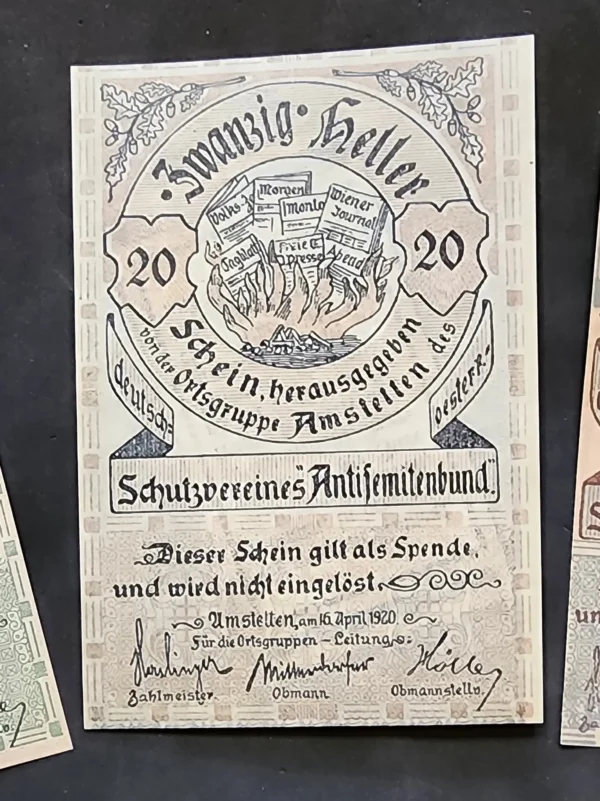 Zwanzig Heller
Volks-
Morgen
Montag
Wiener
Journal
Tagblatt
Freie
Presse
Abend
20
20
Schein, herausgegeben
von der Ortsgruppe Amstetten des
deutsch=
oesterr.=
Schutzvereines "Antisemitenbund".
Dieser Schein gilt als Spende,
und wird nicht eingelöst.
Amstetten, am 16. April 1920.
Für die Ortsgruppen-Leitung:
Mitterdorfer
Zahlmeister.
Obmann
Obmannstellv.